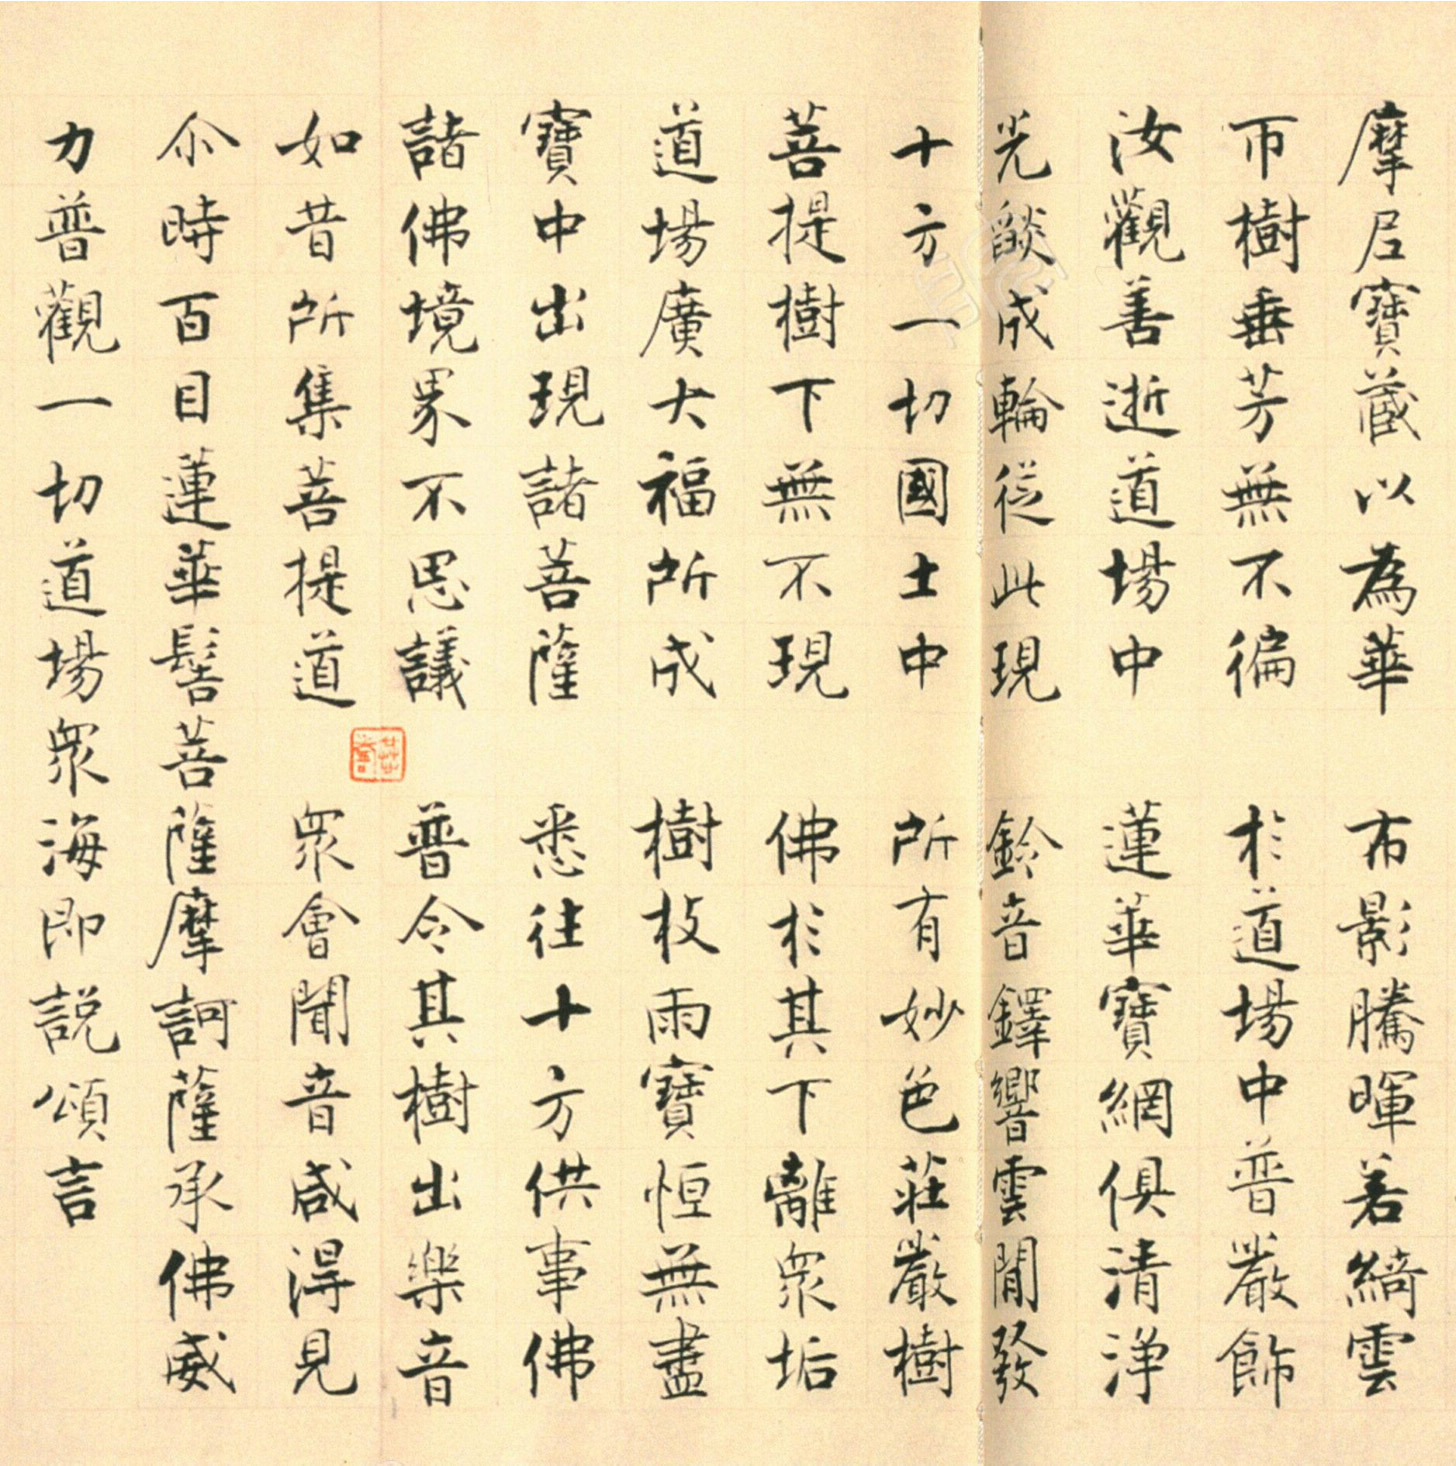 摩尼寶藏以為華　布影騰暉若綺雲
帀樹垂芳無不徧　於道場中普嚴飾
汝觀善逝道場中　蓮華寶網俱清淨
光燄成輪從此現　鈴音鐸響雲間發
十方一切國土中　所有妙色莊嚴樹
菩提樹下無不現　佛於其下離眾垢
道場廣大福所成　樹枝雨寶恒無盡
寶中出現諸菩薩　悉往十方供事佛
諸佛境界不思議　普令其樹出樂音
如昔所集菩提道　眾會聞音咸得見
尒時百目蓮華髻菩薩摩訶薩承佛威
力普觀一切道場眾海即説頌言